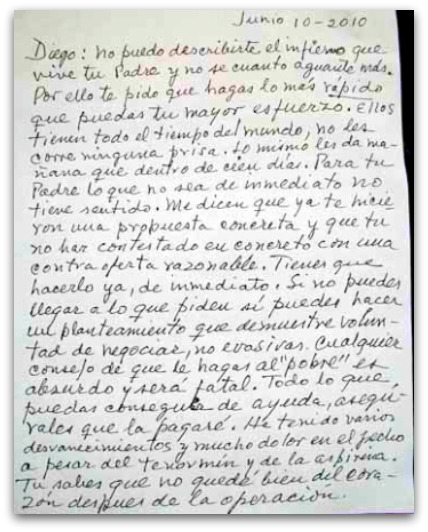 Junio 10-2010
Diego: no puedo describirte el infierno que
vive tu Padre y no se cuanto aguante más.
Por ello te pido que hagas lo más rápido
que puedas tu mayor esfuerzo. Ellos
tienen todo el tiempo del mundo, no les
corre ninguna prisa. Lo mismo les da ma-
ñana que dentro de cien días. Para tu
Padre lo que no sea de inmediato no
tiene sentido. Me dicen que ya te hicie
ron una propuesta concreta y que tu
no haz contestado en concreto con una
contra oferta razonable. Tienes que
hacerlo ya, de inmediato. Si no puedes
llegar a lo que piden sí puedes hacer
un planteamiento que demuestre volun-
tad de negociar, no evasivas. Cualquier
consejo de que le hagas al "pobre" es
absurdo y será fatal. Todo lo que
puedas conseguir de ayuda, asegú-
rales que la pagaré. He tenido varios
desvanecimientos y mucho dolor en el pecho
a pesar del tenormín y de la aspirina.
Tu sabes que no quedé bien del cora-
zón despues de la operación.